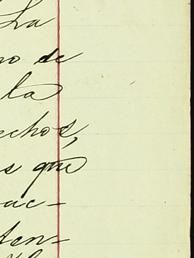 La
no de
la
echos,
s que
ac-
ten-